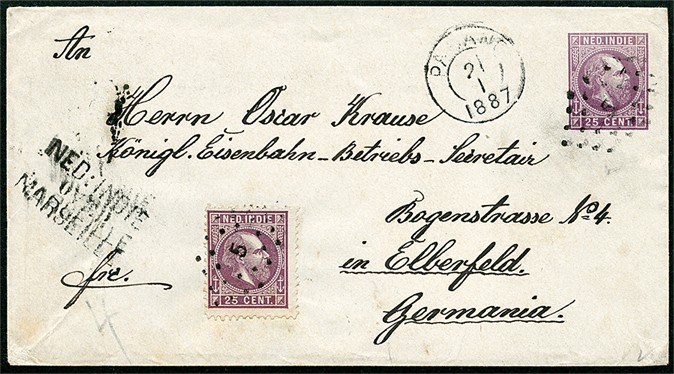 An
Herrn Oscar Krause
Königl. Eisenbahn-Betriebs-Secretair
Bogenstrasse No 4.
in Elberfeld.
Germania.
fr.
21
1
1887
NED. INDIE
25 CENT.
NED: INDIE
OVER
MARSEILLE
NED. INDIE
5
25 CENT.